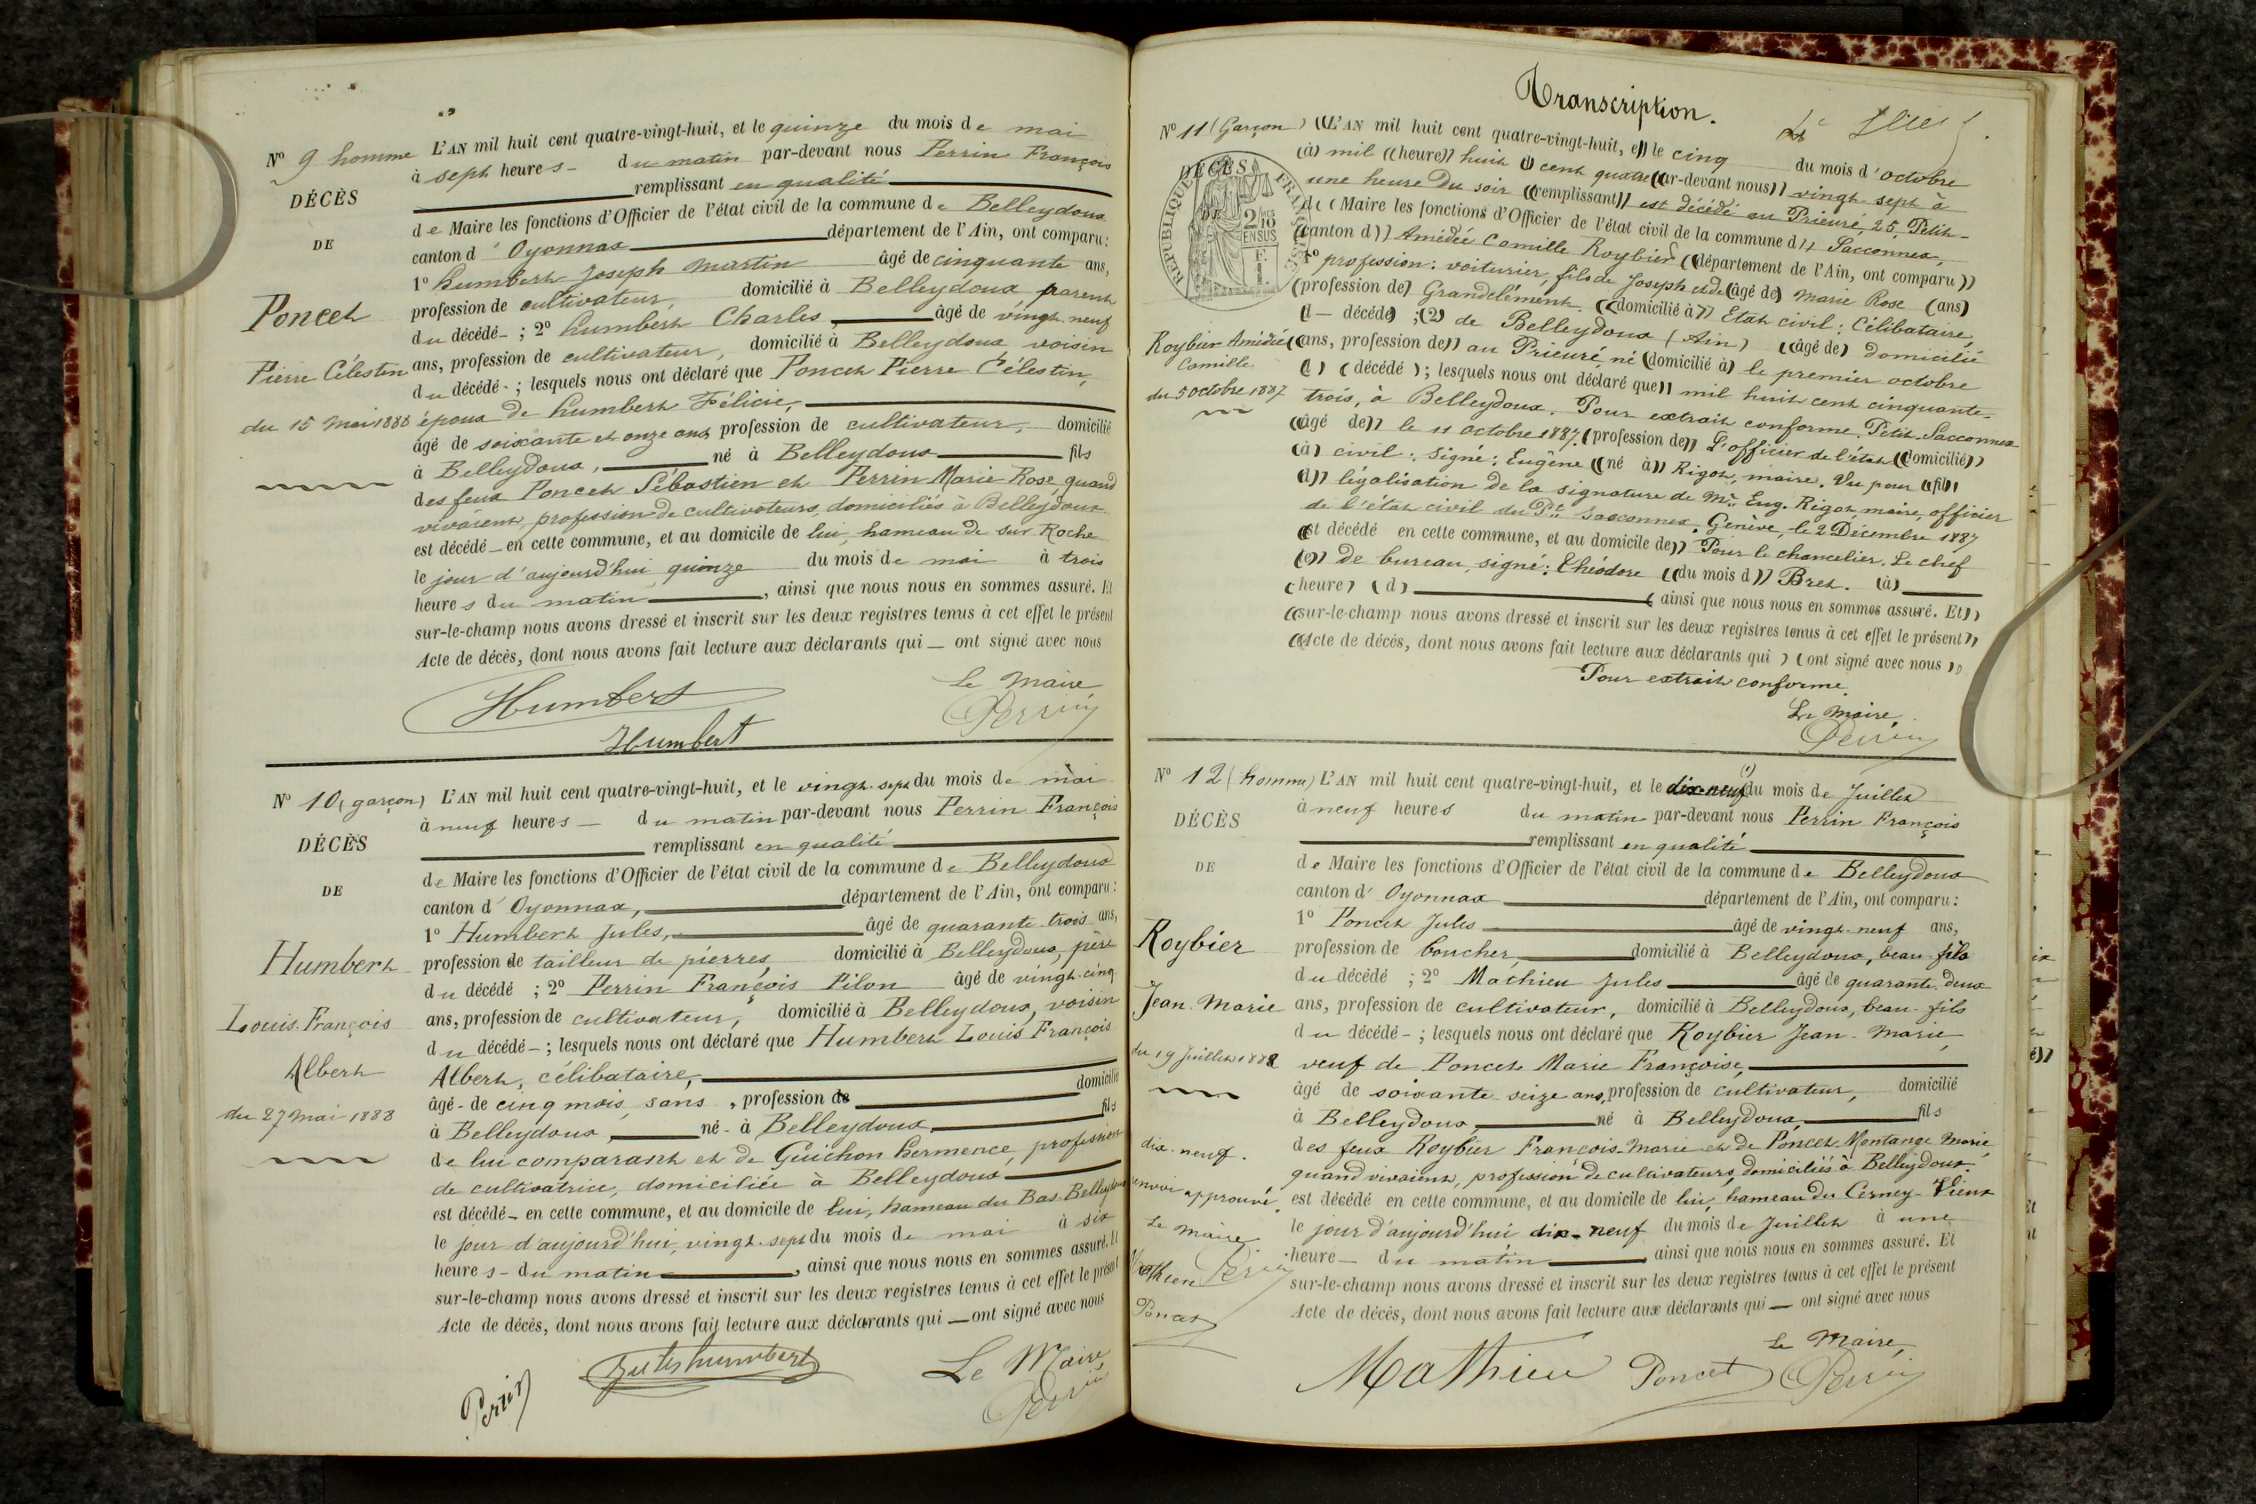 Nº 9 homme
DÉCÈS
DE
Poncet
Pierre Célestin
du 15 mai 1888
L'AN mil huit cent quatre-vingt-huit, et le quinze du mois de mai
à sept heures - du matin par-devant nous Perrin François
remplissant en qualité
de Maire les fonctions d'Officier de l'état civil de la commune de Belleydoux
canton d'Oyonnax département de l'Ain, ont comparu :
1º humbert Joseph Martin âgé de cinquante ans,
profession de cultivateur, domicilié à Belleydoux parent
du décédé - ; 2º humbert Charles, âgé de vingt-neuf
ans, profession de cultivateur, domicilié à Belleydoux voisin
du décédé - ; lesquels nous ont déclaré que Poncet Pierre Célestin,
époux de humbert Félicie,
âgé de soixante et onze ans, profession de cultivateur, domicilié
à Belleydoux, né à Belleydoux fils
des feux Poncet Sébastien et Perrin Marie Rose, quand
vivaient, profession de cultivateurs, domiciliés à Belleydoux
est décédé - en cette commune, et au domicile de lui, hameau de sur Roche
le jour d'aujourd'hui quinze du mois de mai à trois
heures du matin, ainsi que nous nous en sommes assuré. Et
sur-le-champ nous avons dressé et inscrit sur les deux registres tenus à cet effet le présent
Acte de décès, dont nous avons fait lecture aux déclarants qui — ont signé avec nous
Le Maire
Humbert Perrin
Humbert
Nº 10 (garçon)
DÉCÈS
DE
Humbert
Louis François
Albert
du 27 mai 1888
L'AN mil huit cent quatre-vingt-huit, et le vingt-sept du mois de mai
à neuf heures - du matin par-devant nous Perrin François
remplissant en qualité
de Maire les fonctions d'Officier de l'état civil de la commune de Belleydoux
canton d'Oyonnax, département de l'Ain, ont comparu :
1º Humbert Jules, âgé de quarante-trois ans,
profession de tailleur de pierres, domicilié à Belleydoux, père
du décédé ; 2º Perrin François Pilon âgé de vingt-cinq
ans, profession de cultivateur, domicilié à Belleydoux, voisin
du décédé - ; lesquels nous ont déclaré que Humbert Louis François
Albert, célibataire,
âgé - de cinq mois, sans, profession de domicilié
à Belleydoux, né - à Belleydoux, fils
de lui comparant et de Guichon hermence, profession
de cultivatrice, domiciliée à Belleydoux
est décédé - en cette commune, et au domicile de lui, hameau du Bas-Belleydoux
le jour d'aujourd'hui, vingt-sept du mois de mai à six
heures - du matin, ainsi que nous nous en sommes assuré. Et
sur-le-champ nous avons dressé et inscrit sur les deux registres tenus à cet effet le présent
Acte de décès, dont nous avons fait lecture aux déclarants qui — ont signé avec nous
Jules humbert Le Maire
Perrin Perrin
Transcription.
Nº 11 (Garçon)
DÉCÈS
DE
RÉPUBLIQUE FRANÇAISE
2/10 EN SUS
Roybier Amédée
Camille
du 5 octobre 1887
((L'AN mil huit cent quatre-vingt-huit, e)) le cinq du mois d'octobre
(à) mil ((heure)) huit () cent quatre ((ar-devant nous)) vingt-sept à
une heure du soir ((remplissant)) est décédé au Prieuré, 25, Petit-
d (( Maire les fonctions d'Officier de l'état civil de la commune d )) Sacconnex,
((canton d )) Amédée Camille Roybier ((département de l'Ain, ont comparu))
1º profession : voiturier, fils de Joseph et de (âgé de) Marie Rose (ans)
(profession de) Grandclément ((domicilié à)) Etat civil : Célibataire,
(d — décédé) ; (2) de Belleydoux (Ain) ((âgé de) domicilié
((ans, profession de)) au Prieuré, né (domicilié à) le premier octobre
(d) (décédé) ; lesquels nous ont déclaré que)) mil huit cent cinquante-
trois, à Belleydoux. Pour extrait conforme. Petit-Sacconnex
((âgé de)) le 11 octobre 1887. (profession de)) L'officier de l'état ((domicilié))
(à) civil : signé : Eugène ((né à)) Rigot, maire. Vu pour (fils)
(d)) légalisation de la signature de Mr. Eug. Rigot, maire, officier
de l'état civil du Pt. Sacconnex. Genève, le 2 Décembre 1887
(est décédé en cette commune, et au domicile de)) Pour le chancelier. Le chef
(e)) de bureau, signé : Théodore ((du mois d)) Bret. (à)
(heure) (d) (ainsi que nous nous en sommes assuré. Et))
((sur-le-champ nous avons dressé et inscrit sur les deux registres tenus à cet effet le présent))
((Acte de décès, dont nous avons fait lecture aux déclarants qui ) (ont signé avec nous))
Pour extrait conforme.
Le Maire,
Perrin
Nº 12 (homme)
DÉCÈS
DE
Roybier
Jean-Marie
du 19 Juillet 1888
dix-neuf.
renvoi approuvé.
Le Maire
Mathieu Perrin
Poncet
L'AN mil huit cent quatre-vingt-huit, et le dix-neuf (1) du mois de Juillet
à neuf heures du matin par-devant nous Perrin François
remplissant en qualité
de Maire les fonctions d'Officier de l'état civil de la commune de Belleydoux
canton d'Oyonnax département de l'Ain, ont comparu :
1º Poncet Jules âgé de vingt-neuf ans,
profession de boucher, domicilié à Belleydoux, beau-fils
du décédé ; 2º Mathieu Jules âgé de quarante-deux
ans, profession de cultivateur, domicilié à Belleydoux, beau-fils
du décédé - ; lesquels nous ont déclaré que Roybier Jean-Marie,
veuf de Poncet Marie Françoise,
âgé de soixante-seize ans, profession de cultivateur, domicilié
à Belleydoux, né à Belleydoux, fils
des feux Roybier François-Marie et de Poncet-Montange Marie,
quand vivaient, profession de cultivateurs, domiciliés à Belleydoux.
est décédé en cette commune, et au domicile de lui, hameau du Cerney-Vieux
le jour d'aujourd'hui dix-neuf du mois de Juillet à une
heure — du matin, ainsi que nous nous en sommes assuré. Et
sur-le-champ nous avons dressé et inscrit sur les deux registres tenus à cet effet le présent
Acte de décès, dont nous avons fait lecture aux déclarants qui — ont signé avec nous
Le Maire,
Mathieu Poncet Perrin